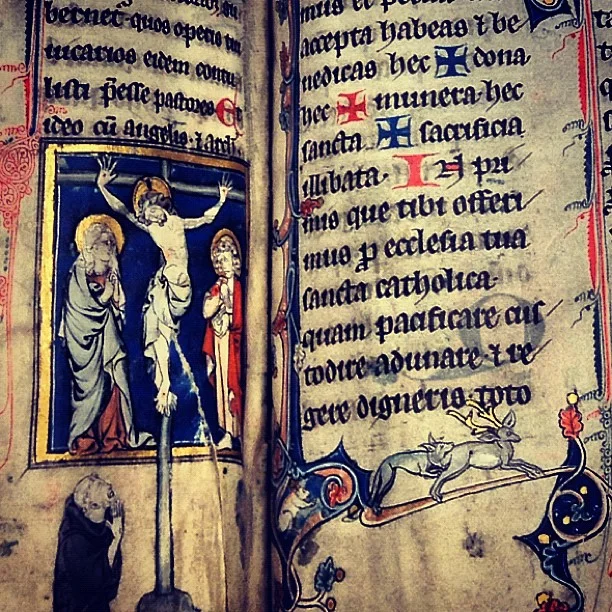 bernet. quos operis tui
uicarios eidem contu
listi preesse pastores Et
ideo cū angelis ⁊ archā
accepta habeas ⁊ be
nedicas hec ✠ dona
hec ✠ munera hec
sancta ✠ sacrificia
illibata. IN pri
mis que tibi offeri
mus p ecclesia tua
sancta catholica.
quam pacificare cus
todire adunare ⁊ re
gere digneris toto